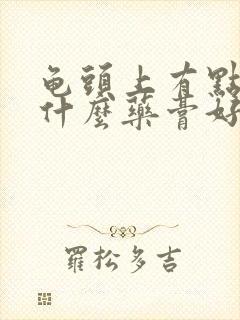 龟頭上有點
什麼藥膏好
羅松多吉